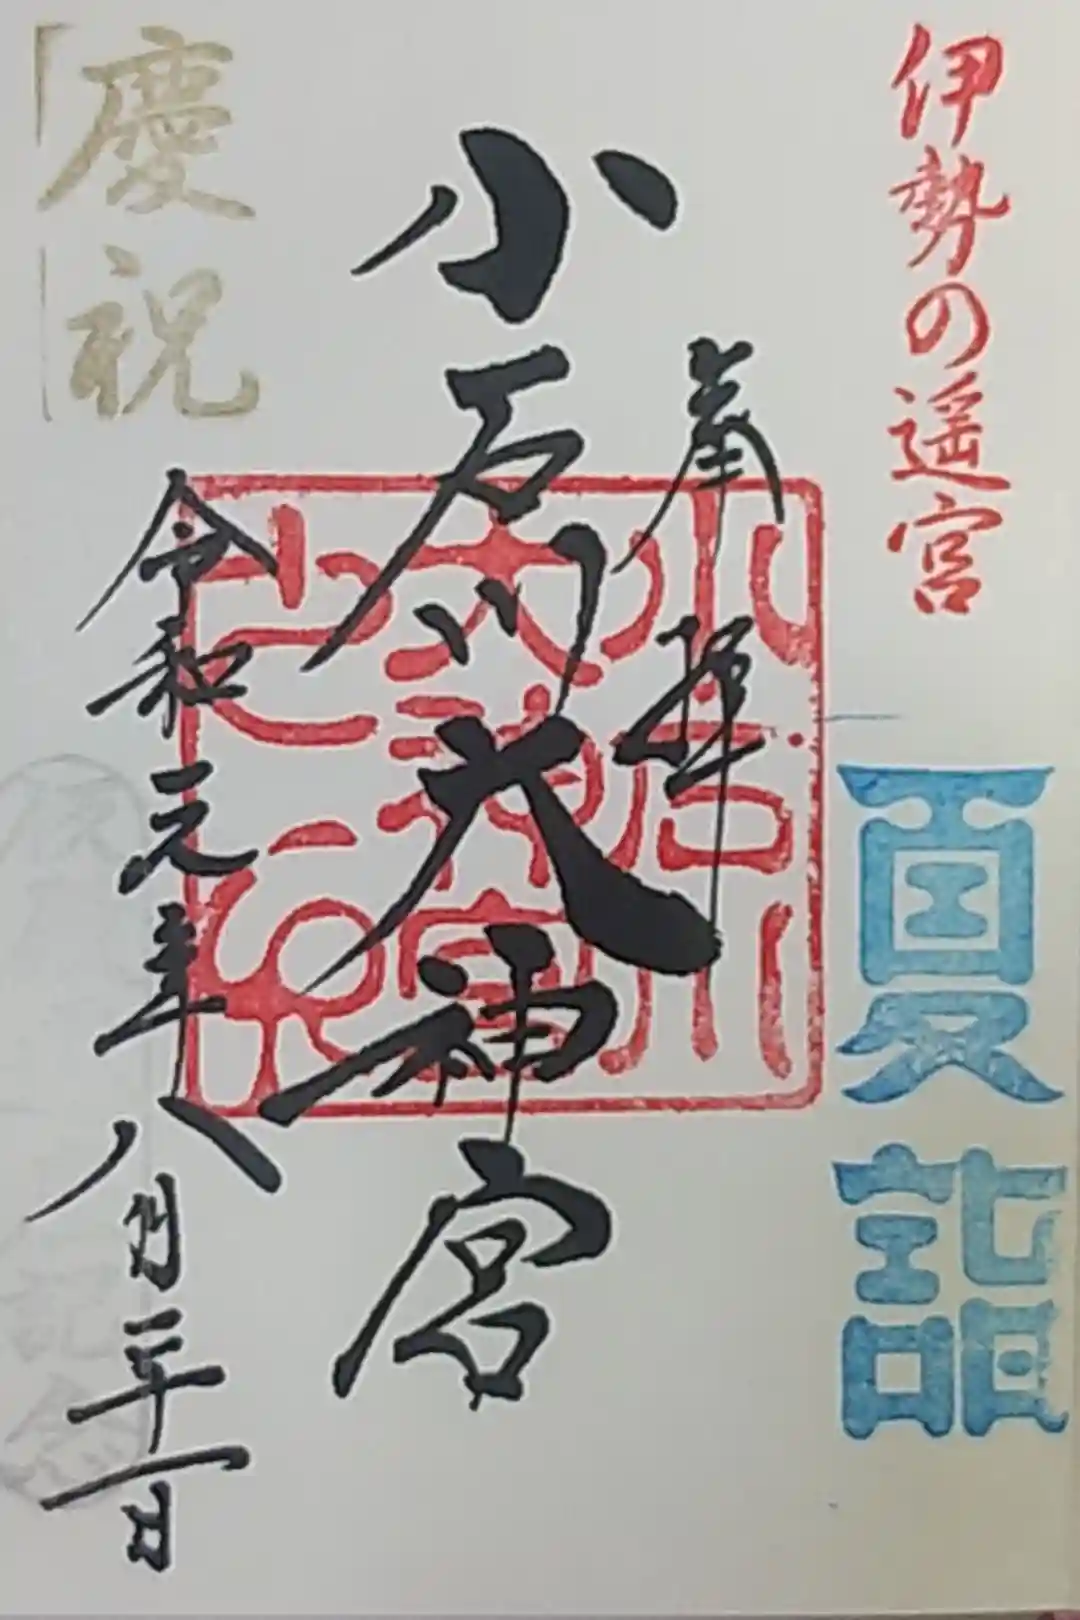 伊勢の遥宮
夏詣
奉拝
小石川大神宮
小石川
大神宮
之印
令和元年八月二十一日
慶祝